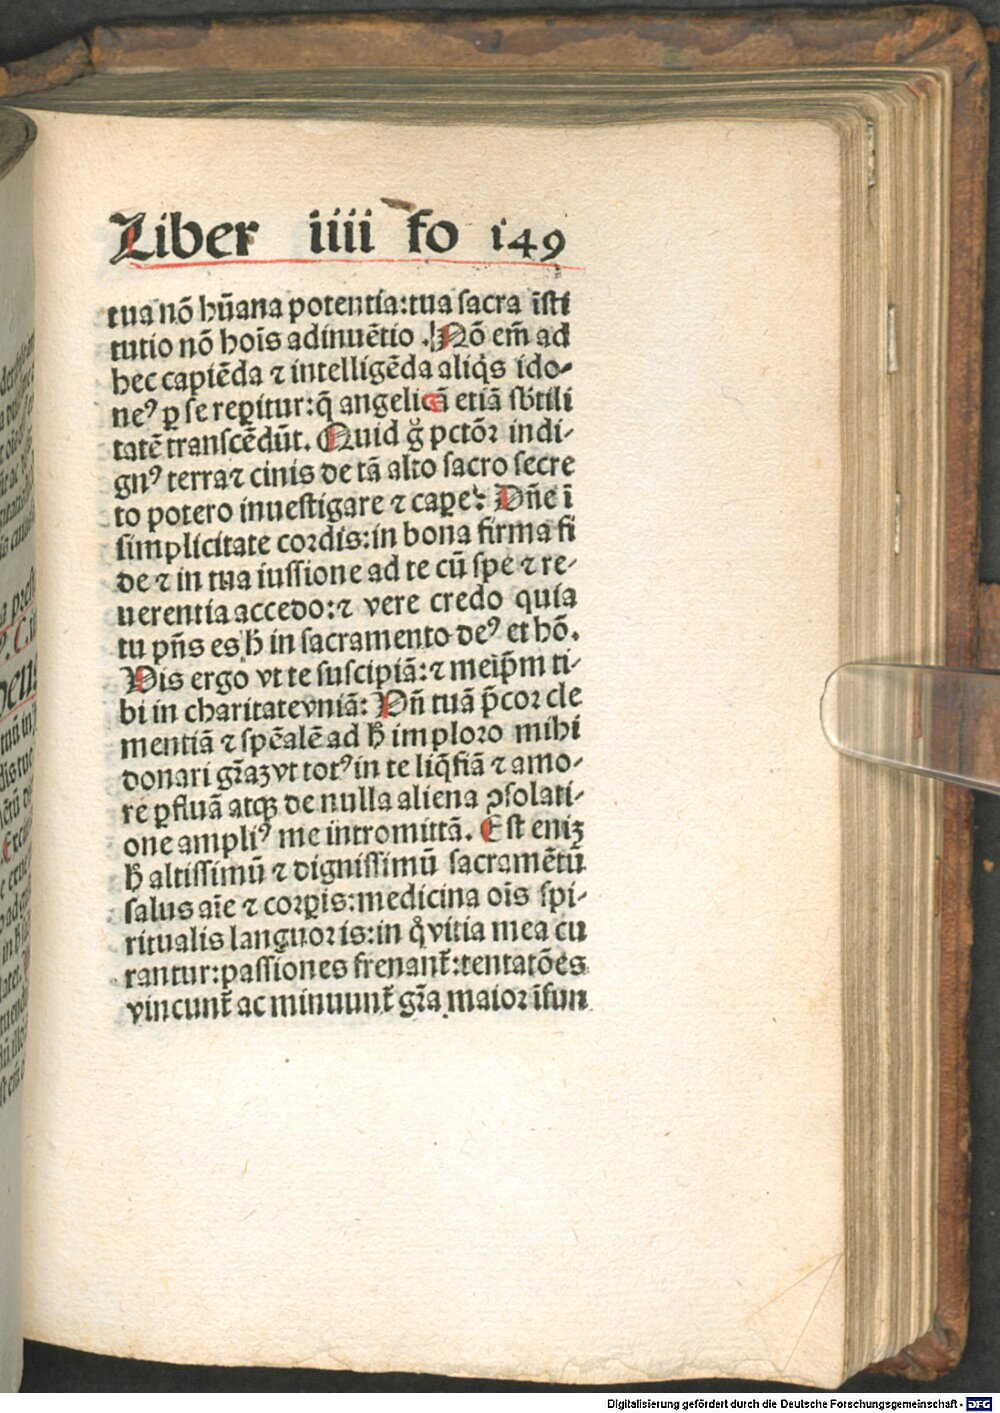 Liber iiii fo 149
tua nō hūana potentia:tua sacra īsti
tutio nō hoīs adinuētio. Nō em̄ ad
hec capiēda ⁊ intelligēda aliq̇s ido-
neꝰ ꝑ se reꝑitur:q̄ angelicā etiā sb̄tili
tatē transcēdūt. Quid g̊ pctōꝛ indi-
gnꝰ terra ⁊ cinis de tā alto sacro secre
to potero inuestigare ⁊ caꝑe: Dn̄e ī
simplicitate coꝛdis:in bona firma fi
de ⁊ in tua iussione ad te cū spe ⁊ re-
uerentia accedo:⁊ vere credo quia
tu pn̄s es h̄ in sacramento deꝰ et hō.
Uis ergo vt te suscipiā:⁊ meip̄m ti-
bi in charitate vniā: Vn̄ tuā p̄coꝛ cle
mentiā ⁊ spēalē ad h̄ imploꝛo mihi
donari gr̄aꝫ vt totꝰ in te liq̄fiā ⁊ amo-
re ꝑfluā atqꝫ de nulla aliena ꝯsolati-
one ampliꝰ me intromittā. Est eniꝫ
h̄ altissimū ⁊ dignissimū sacramētū
salus aīe ⁊ coꝛꝑis:medicina oīs spi-
ritualis languoꝛis:in q̊ vitia mea cu
rantur:passiones frenant̄:tentatōes
vincunt̄ ac minuunt̄ gr̄a maioꝛ īfun
Digitalisierung gefördert durch die Deutsche Forschungsgemeinschaft - DFG